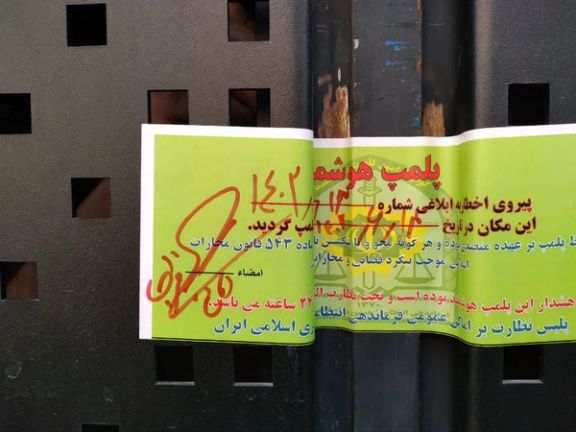 پلمپ هوشم
پیروی اخطاریه ابلاغی شماره
این مکان در تاریخ ۱۴۰۲/ لمپ گردید.
ظ پلمپ بر عهده متصرف بوده و هر گونه محو و یا شکستن ماده ۵۴۳ قانون مجازات
اسلامی موجب پیگرد قضائی و مجازات
امضاء
هشدار این پلمپ هوشمند بوده است و تحت نظارت ۲۴ ساعته می باشد.
پلیس نظارت بر اماکن عمومی فرماندهی انتظامی ری اسلامی ایران